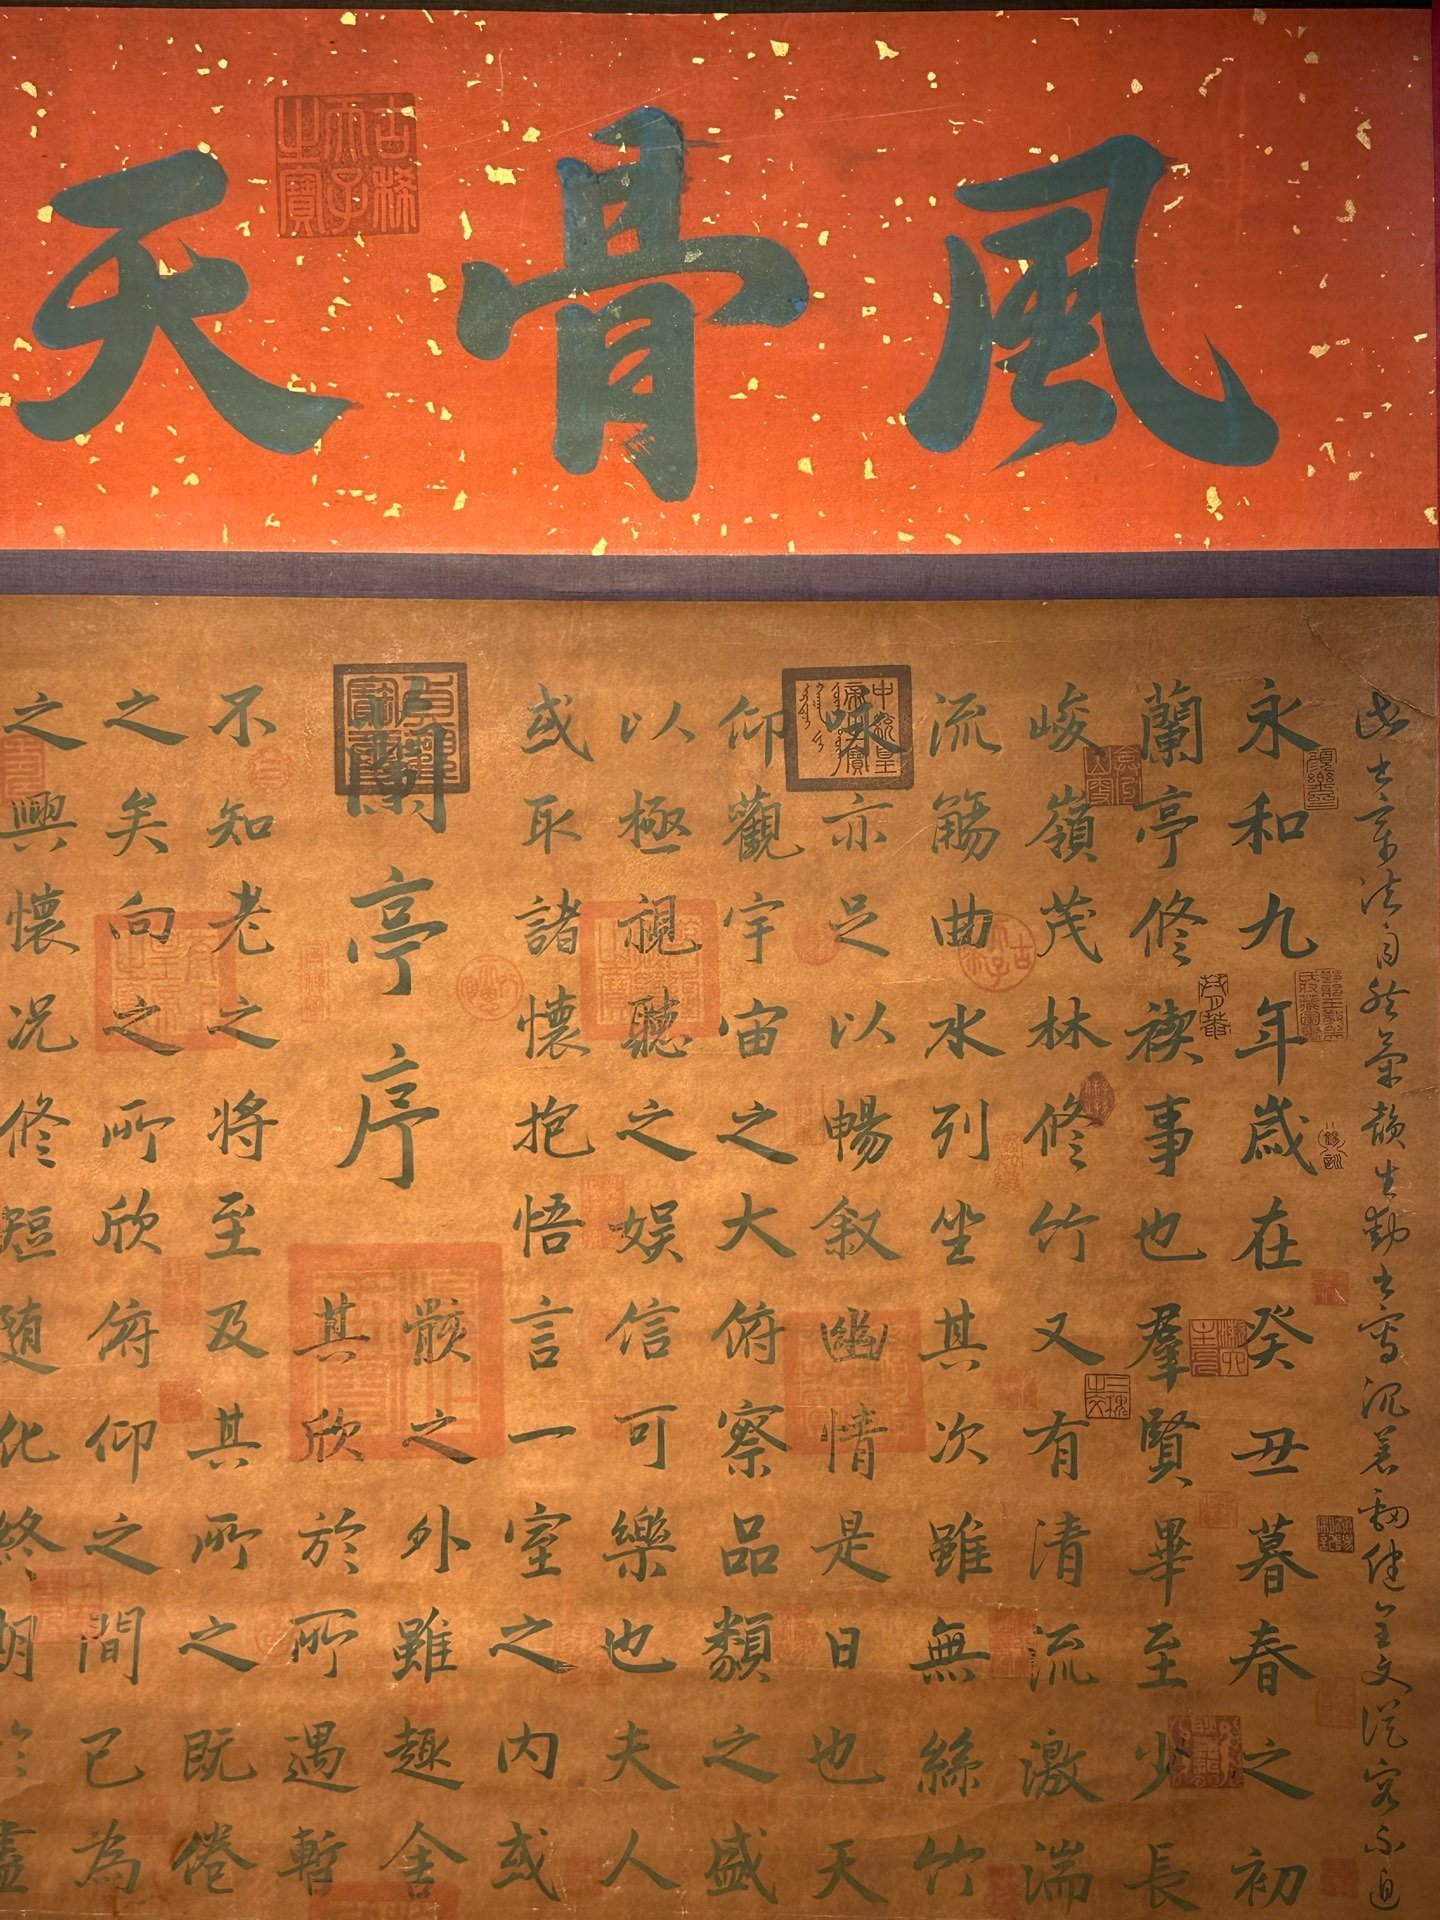 風骨天
古稀天子之寶
此書章法自然氣韻生動書寫沉着勁健全文從容不迫
永和九年歲在癸丑暮春之初
蘭亭修禊事也羣賢畢至少長
峻嶺茂林修竹又有清流激湍
流觴曲水列坐其次雖無絲竹
詠亦足以暢叙幽情是日也天
仰觀宇宙之大俯察品類之盛
以極視聽之娱信可樂也夫人
或取諸懷抱悟言一室之内或
蘭亭序
骸之外雖趣舍
其欣於所遇暫
不知老之将至及其所之既倦
之矣向之所欣俯仰之間已為
之興懷况修短随化終期於盡